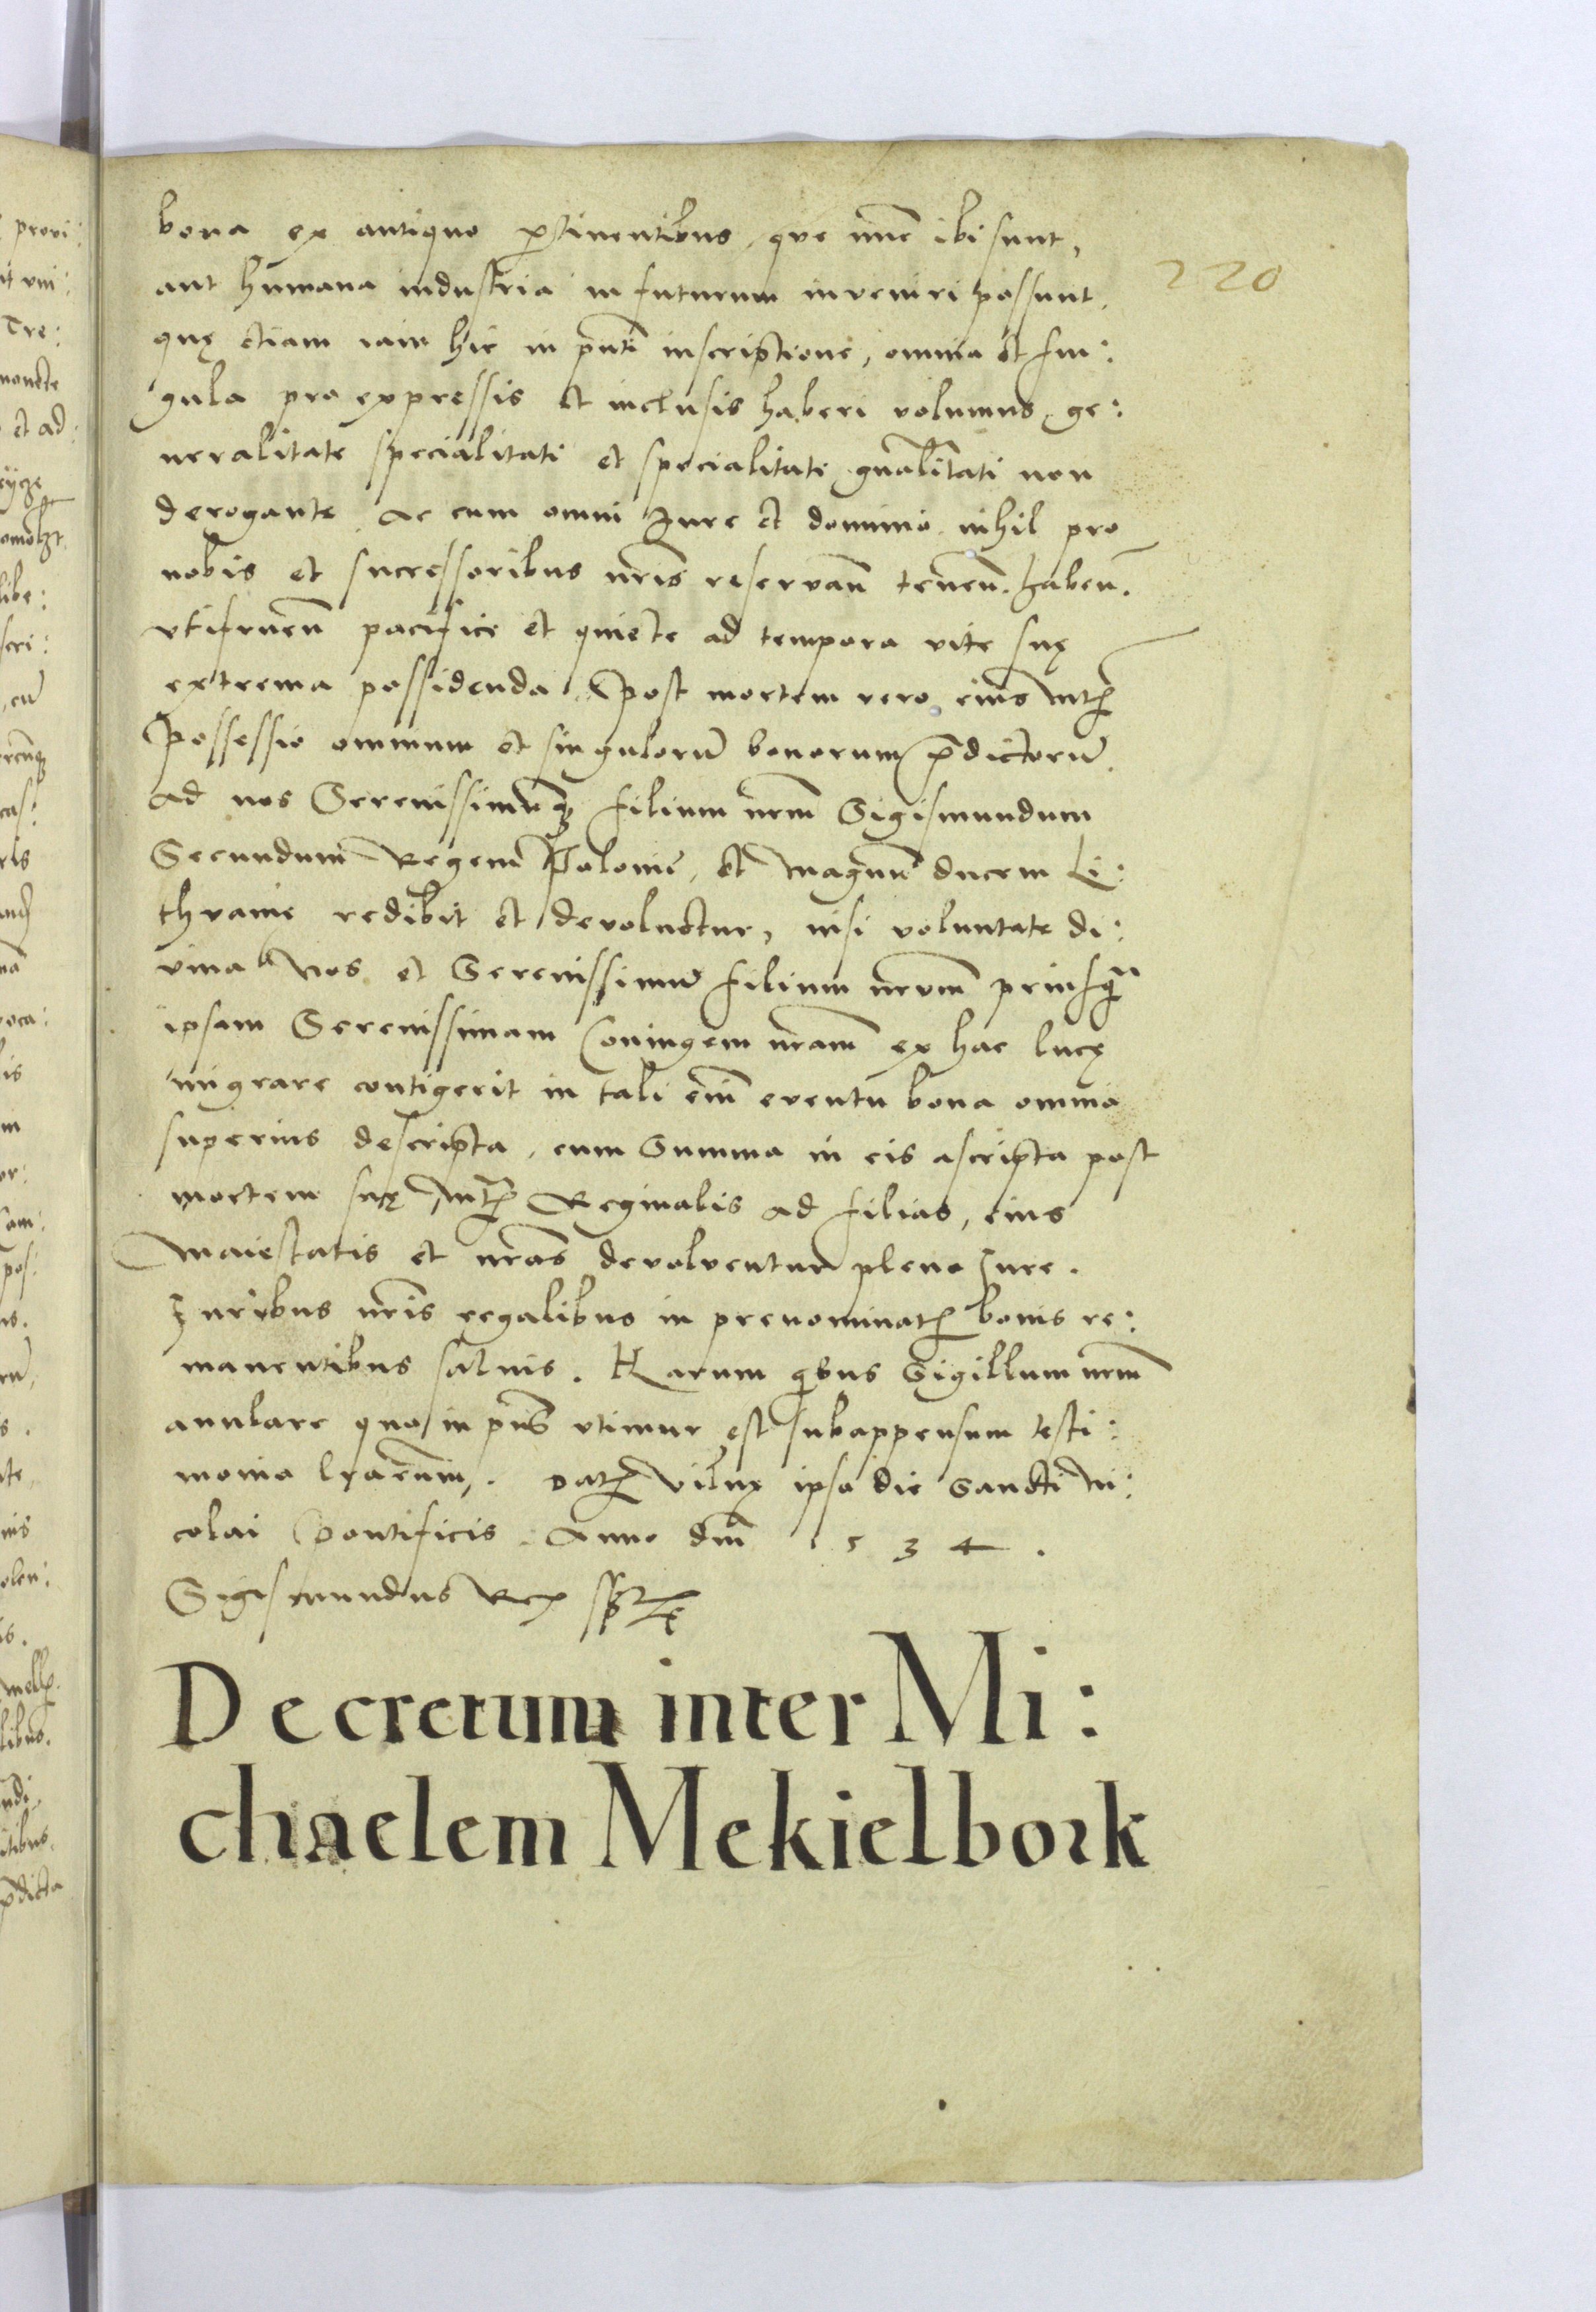 220
bona ex antiquo ꝑtinentibus, que nūc ibi sunt,
aut humana industria in futurum inveniri possunt,
quę etiam iam hic in pn̄ti inscriptione, omnia et sin:
gula pro expressis et inclusis haberi volumus, ge:
neralitate specialitati et specialitate gn̄alitati non
derogante. Ac cum omni Iure et dominio nihil pro
nobis et successoribus nr̄is reservan̄ tenen̄. haben̄.
vtifruen̄ pacifice et quiete ad tempora vite suę
extrema possidenda. Post mortem vero eius
Possessio omnium et singulorū bonorum p̄dictorū
ad nos Serenissimūqꝫ filium nr̄m Sigismundum
Secundum Regem Polonię, et Magnū ducem Li:
thvanię redibit et devoluetur, nisi voluntate di:
vina Nos et Serenissimū filium nr̄vm priusq̃
ipsam Serenissimam Coniugem nr̄am ex hac lucę
migrare contigerit in tali em̄ eventu bona omnia
superius descripta, cum Summa in eis ascripta post
mortem suę Reginalis ad filias, eius
Maiestatis et nr̄as devolventur pleno Iure.
Iuribus nr̄is regalibus in prenominatꝭ bonis re:
manentibus salvis. Harum qͥbus Sigillum nr̄m
annlare quo in pn̄s vtimur est subappensum testi:
monio lr̄arum. Datꝭ Vilnę ipso die Sancti Ni:
colai Pontificis. Anno dn̄i 1534.
Sigismundus Rex
Decretum inter Mi:
chaelem Mekielbork